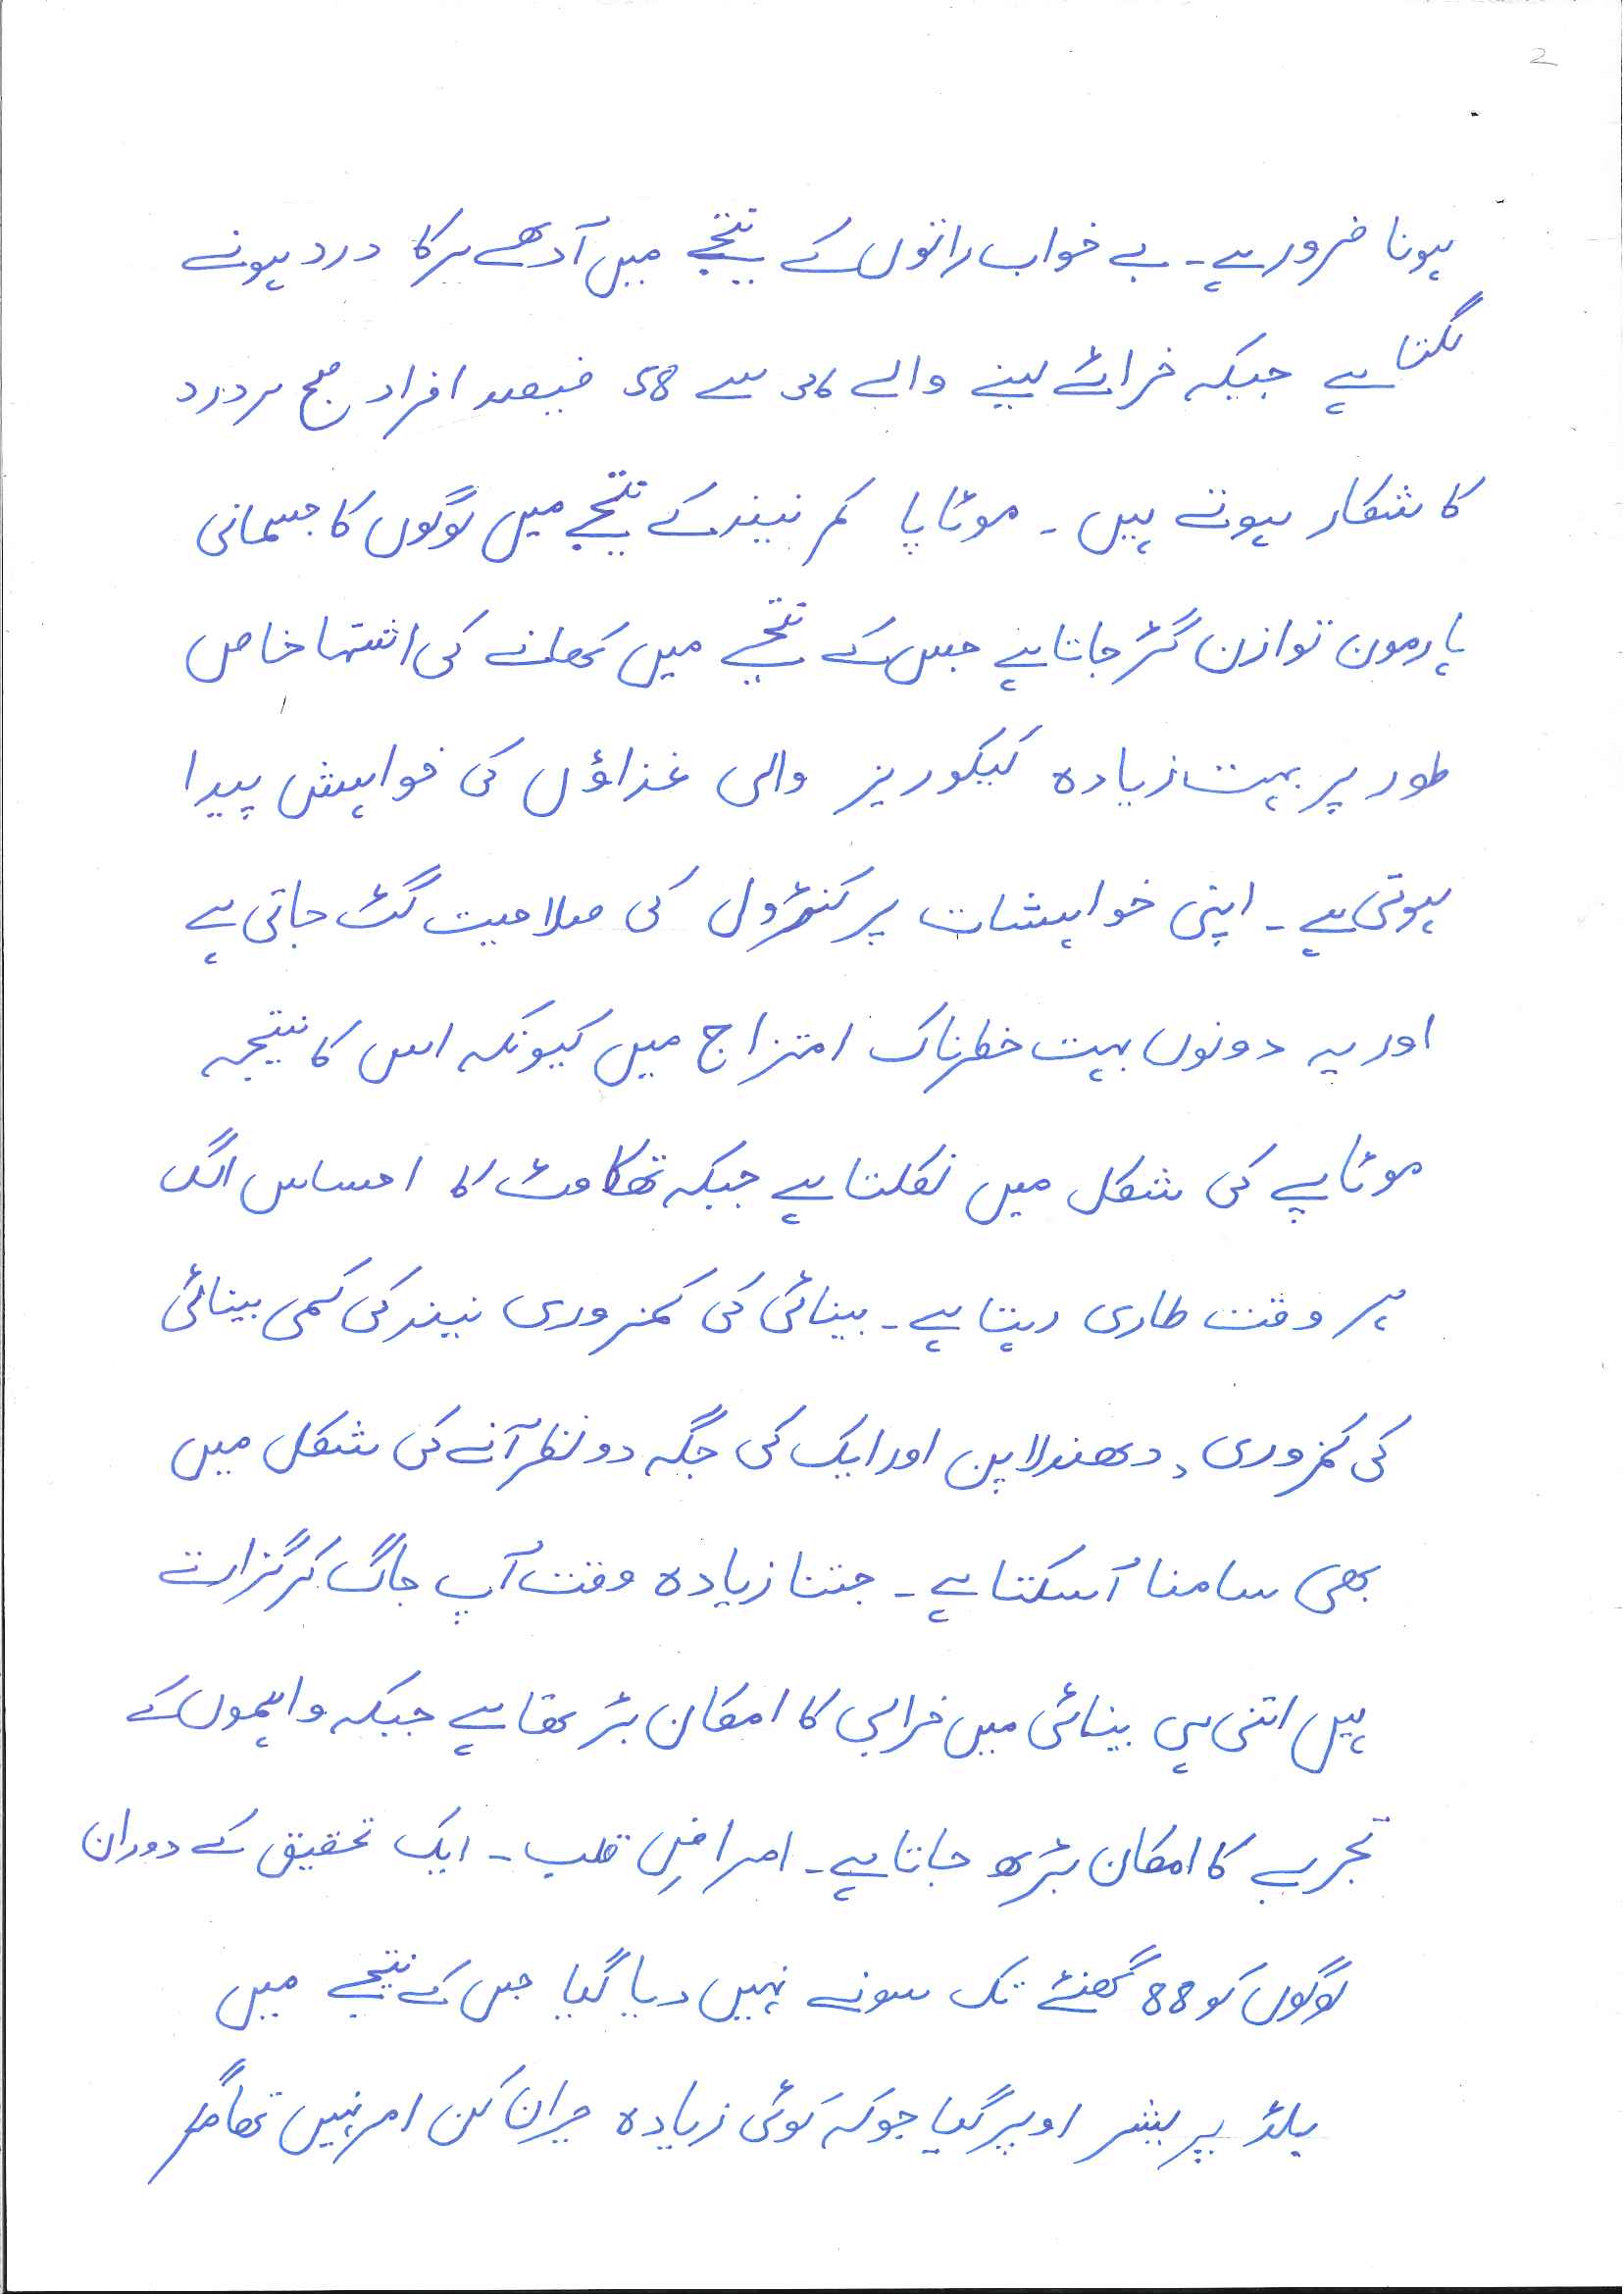 2
ہونا ضرور ہے۔ بے خواب راتوں کے نتیجے میں آدھے سر کا درد ہونے
لگتا ہے جبکہ خراٹے لینے والے 36 سے 58 فیصد افراد صبح سر درد
کا شکار ہوتے ہیں۔ موٹاپا کم نیند کے نتیجے میں لوگوں کا جسمانی
ہارمون توازن گڑ جاتا ہے جس کے نتیجے میں کھانے کی اشتہا خاص
طور پر بہت زیادہ کیکوریز والی غذاؤں کی خواہش پیدا
ہوتی ہے۔ اپنی خواہشات پر کنٹرول کی صلاحیت گٹ جاتی ہے
اور یہ دونوں بہت خطرناک امتزاج میں کیونکہ اس کا نتیجہ
موٹاپے کی شکل میں نکلتا ہے جبکہ تھکاوٹ کا احساس الگ
ہر وقت طاری رہتا ہے۔ بینائی کی کمزوری نیند کی کمی بینائی
کی کمزوری، دھندلا پن اور ایک کی جگہ دو نظر آنے کی شکل میں
بھی سامنا آسکتا ہے۔ جتنا زیادہ وقت آپ جاگ کر گزارتے
ہیں اتنی ہی بینائی میں خرابی کا امکان بڑھتا ہے جبکہ واہموں کے
تجربے کا امکان بڑھ جاتا ہے۔ امراضِ قلب۔ ایک تحقیق کے دوران
لوگوں کو 88 گھنٹے تک سونے نہیں دیا گیا جس کے نتیجے میں
بلڈ پریشر اوپر گیا جو کہ کوئی زیادہ حیران کن امر نہیں تھا مگر